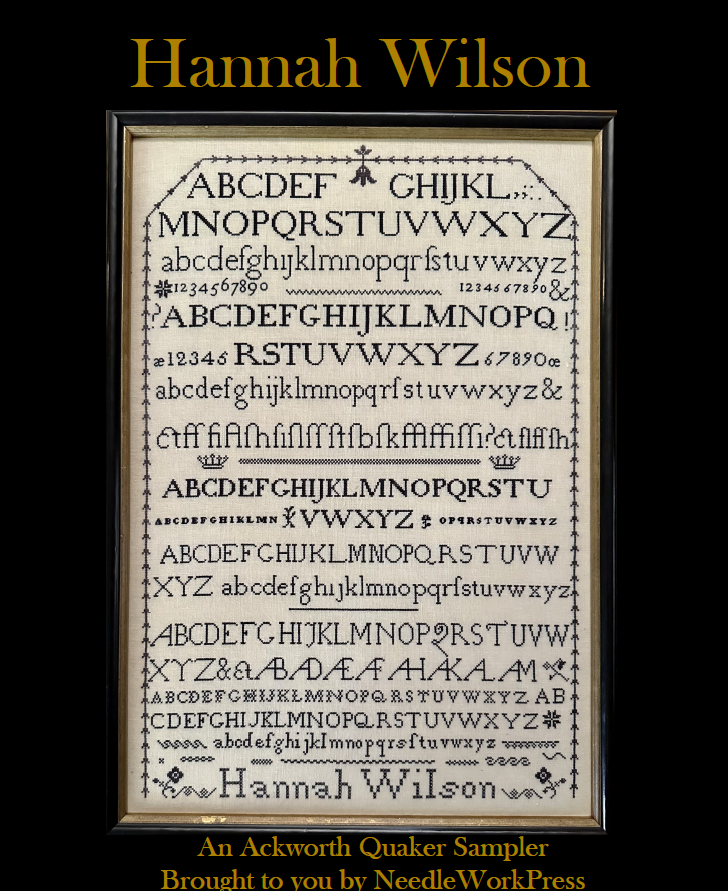 Hannah Wilson
ABCDEF GHIJKL,,;:.
MNOPQRSTUVWXYZ
abcdefghijklmnopqrſstuvwxyz
1234567890 1234567890&
?ABCDEFGHIJKLMNOPQ!
æ12345 RSTUVWXYZ 67890œ
abcdefghijklmnopqrſstuvwxyz&
ABCDEFGHIJKLMNOPQRSTU
ABCDEFGHIKLMN VWXYZ OPQRSTUVWXYZ
ABCDEFGHIJKLMNOPQRSTUVW
XYZ abcdefghijklmnopqrſstuvwxyz
ABCDEFGHIJKLMNOPQRSTUVW
XYZ&
ABCDEFGHIJKLMNOPQRSTUVWXYZ AB
CDEFGHIJKLMNOPQRSTUVWXYZ
abcdefghijklmnopqrsſtuvwxyz
Hannah Wilson
An Ackworth Quaker Sampler
Brought to you by NeedleWorkPress